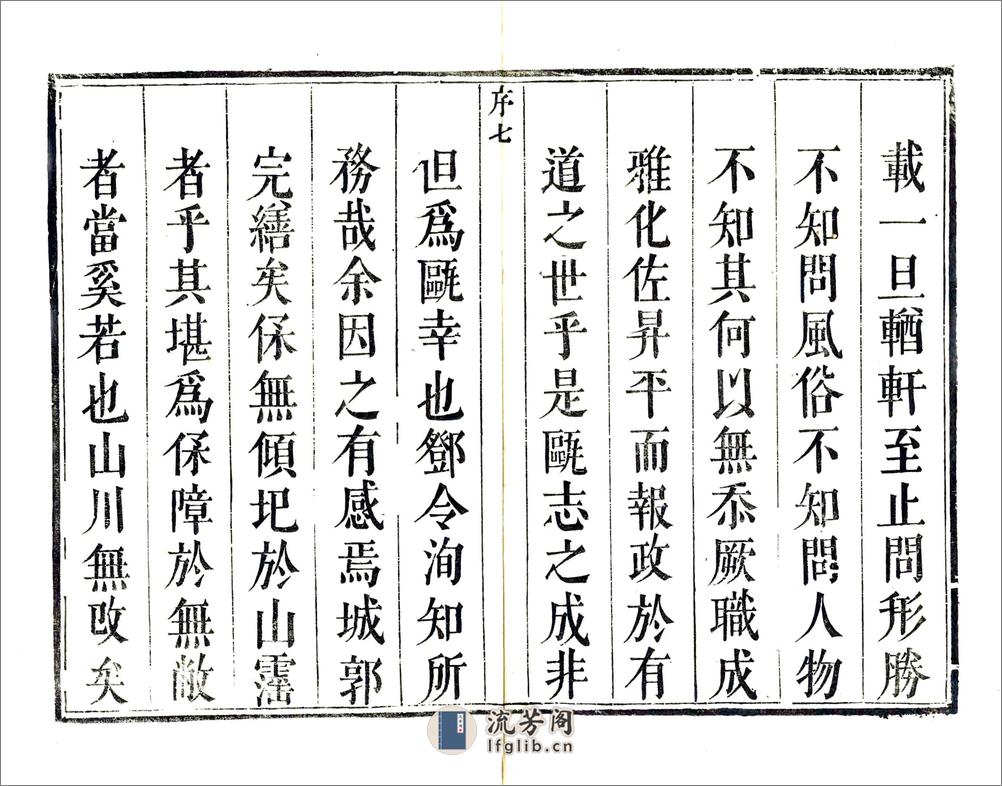 載一旦輶軒至止問形勝
不知問風俗不知問人物
不知其何以無忝厥職成
雅化佐昇平而報政於有
道之世乎是甌志之成非
序七
但爲甌幸也鄧令洵知所
務哉余因之有感焉城郭
完繕矣保無傾圯於山霪
者乎其堪爲保障於無敵
者當奚若也山川無改矣
流芳阁
lfglib.cn